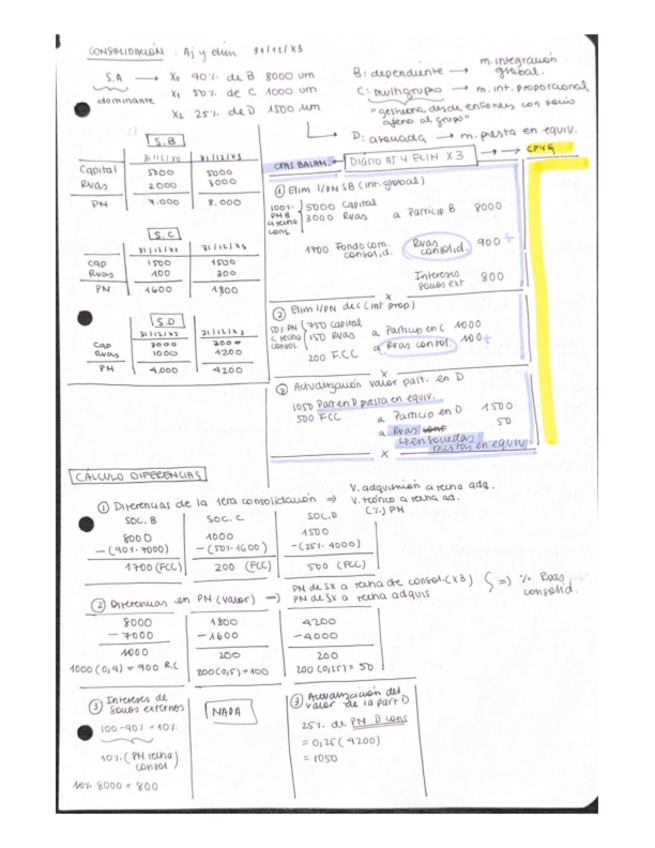 CONSOLIDACIÓN: Aj y elim 31/12/X3
S.A → X0 90% de B 8000 um
dominante X1 50% de C 1000 um
X2 25% de D 1500 um
B: dependiente → m. integración global.
C: multigrupo → m. int. proporcional
"gestiona desde entonces con socio ajeno al grupo"
D: asociada → m. puesta en equiv.
S.B
31/12/X0 31/12/X3
Capital 5000 5000
Rvas 2000 3000
PN 7.000 8.000
S.C
31/12/X1 31/12/X3
Cap 1500 1500
Rvas 100 300
PN 1600 1800
S.D
31/12/X2 31/12/X3
Cap 3000 3000
Rvas 1000 1200
PN 4.000 4200
CTAS BALAN. ← DIARIO AJ Y ELIM X3 → CPYG
① Elim I/PN SB (int. global)
100% PN B a fecha cons.
5000 Capital
3000 Rvas a Particip. B 8000
1700 Fondo com. consolid. Rvas consolid. 900 +
Intereses socios ext 800
x
② Elim I/PN de C (int prop)
50% PN C fecha consol.
750 Capital a Particip en C 1000
150 Rvas
200 F.CC a Rvas consol. 100 +
x
③ Actualización valor part. en D
1050 Part en D puesta en equiv.
500 FCC a Particip en D 1500
a Rvas 50
puestas en equiv
x
CÁLCULO DIFERENCIAS
① Diferencias de la 1era consolidación ⇒ V. adquisición a fecha adq.
V. teórico a fecha ad.
(%) PN
SOC. B SOC. C SOC. D
8000 1000 1500
-(90%·7000) -(50%·1600) -(25%·4000)
1700 (FCC) 200 (FCC) 500 (FCC)
② Diferencias en PN (valor) ⇒ PN de SX a fecha de consol. (X3)
PN de SX a fecha adquis
⇒ % Rvas consolid.
8000 1800 4200
- 7000 - 1600 - 4000
1000 200 200
1000 (0,9) = 900 R.C 200 (0,5) = 100 200 (0,25) = 50
③ Intereses de socios externos
100 - 90% = 10%
10% (PN fecha consol)
10% 8000 = 800
NADA
③ Actualización del valor de la part D
25% de PN D cons
= 0,25 (4200)
= 1050